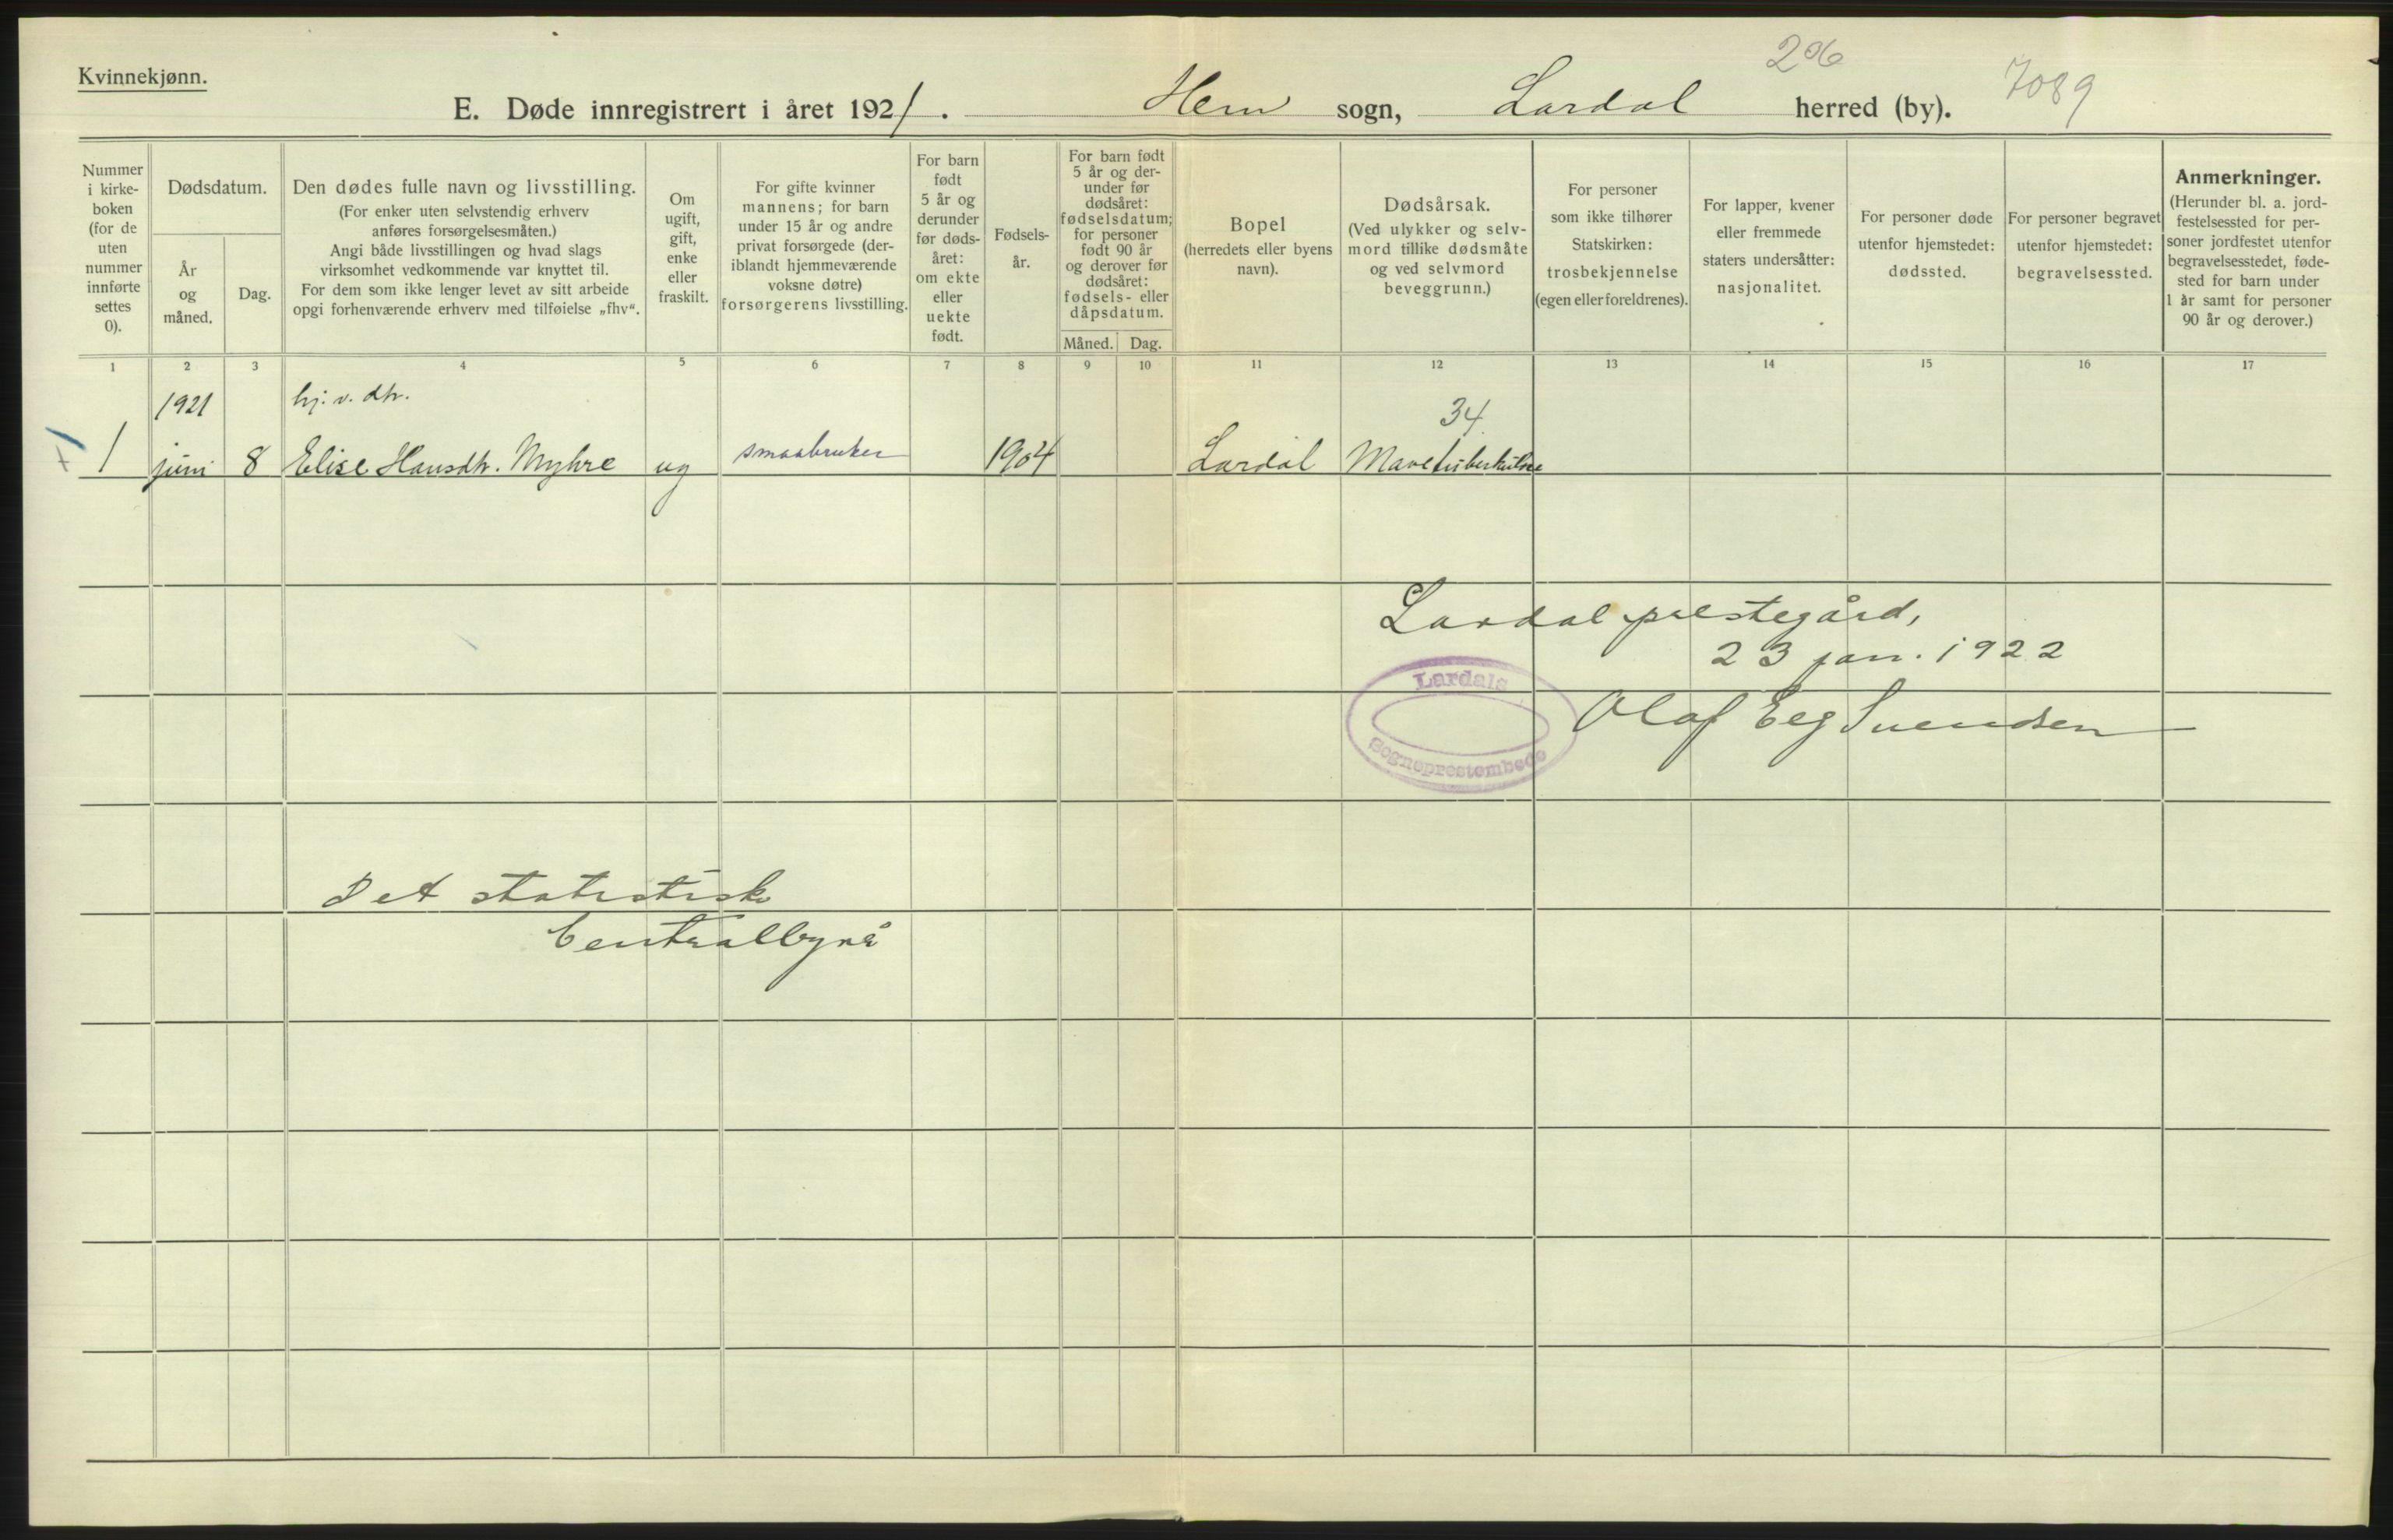 206
Kvinnekjønn.
7089
E. Døde innregistrert i året 1921. Hem sogn, Lardal herred (by).
Nummer
i kirke-
boken
(for de
uten
nummer
innførte
settes
0).
Dødsdatum.
År
og
måned.
Dag.
Den dødes fulle navn og livsstilling.
(For enker uten selvstendig erhverv
anføres forsørgelsesmåten.)
Angi både livsstillingen og hvad slags
virksomhet vedkommende var knyttet til.
For dem som ikke lenger levet av sitt arbeide
opgi forhenværende erhverv med tilføielse „fhv“.
Om
ugift,
gift,
enke
eller
fraskilt.
For gifte kvinner
mannens; for barn
under 15 år og andre
privat forsørgede (der-
iblandt hjemmeværende
voksne døtre)
forsørgerens livsstilling.
For barn
født
5 år og
derunder
før døds-
året:
om ekte
eller
uekte
født.
Fødsels-
år.
For barn født
5 år og der-
under før
dødsåret:
fødselsdatum;
for personer
født 90 år
og derover før
dødsåret:
fødsels- eller
dåpsdatum.
Måned. Dag.
Bopel
(herredets eller byens
navn).
Dødsårsak.
(Ved ulykker og selv-
mord tillike dødsmåte
og ved selvmord
beveggrunn.)
For personer
som ikke tilhører
Statskirken:
trosbekjennelse
(egen eller foreldrenes).
For lapper, kvener
eller fremmede
staters undersåtter:
nasjonalitet.
For personer døde
utenfor hjemstedet:
dødssted.
For personer begravet
utenfor hjemstedet:
begravelsessted.
Anmerkninger.
(Herunder bl. a. jord-
festelsessted for per-
soner jordfestet utenfor
begravelsesstedet, føde-
sted for barn under
1 år samt for personer
90 år og derover.)
1 2 3 4 5 6 7 8 9 10 11 12 13 14 15 16 17
1921 hj. v. dtr. 34
1 juni 8 Elise Hansdtr. Myhre ug smaabruker 1904 Lardal Mavetuberkulose
Lardal prestegård,
23 jan. 1922
Lardals
Sogneprestembede
Olaf Eeg Svendsen
Det statistiske
Centralbyrå